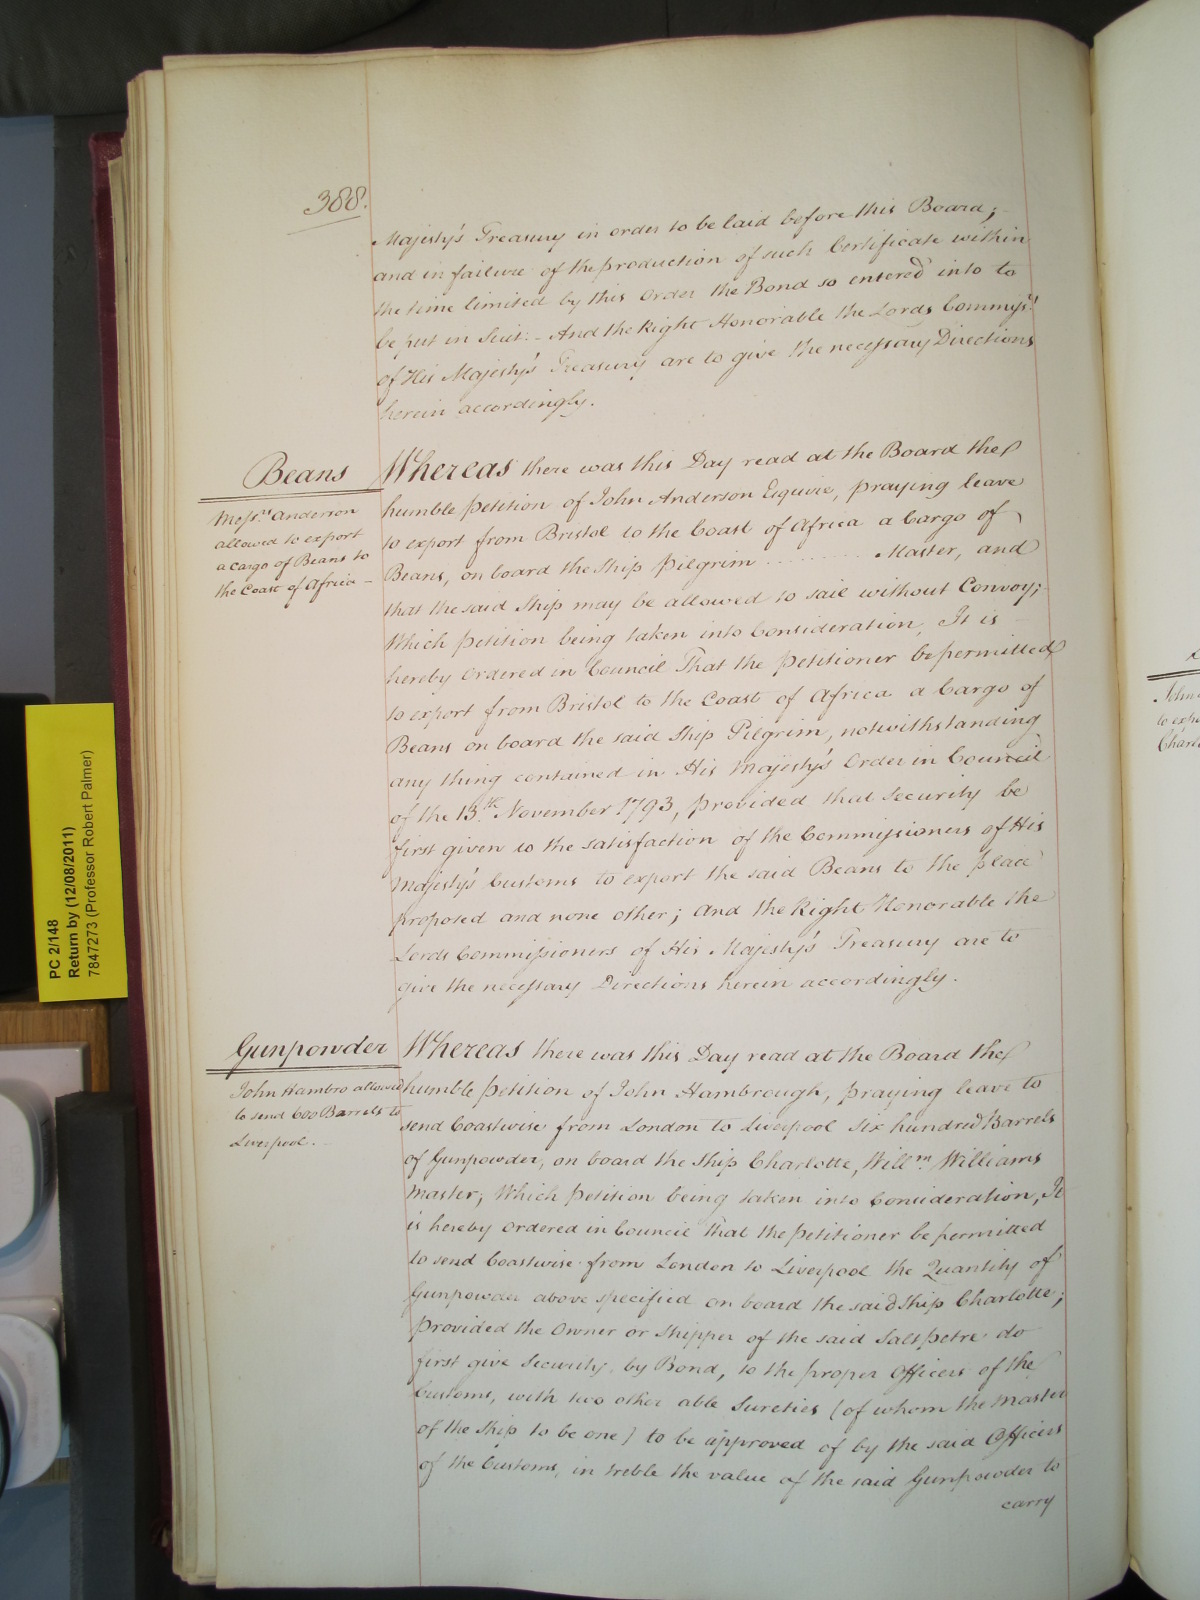 388.
Majesty's Treasury in order to be laid before this Board;
and in failure of the production of such Certificate within
the time limited by this Order the Bond so entered into to
be put in Suit: - And the Right Honorable the Lords Commissrs
of His Majesty's Treasury are to give the necessary Directions
herein accordingly.
Beans
Messrs Anderson
allowed to export
a cargo of Beans to
the Coast of Africa -
Whereas there was this Day read at the Board the
humble petition of John Anderson Esquire, praying leave
to export from Bristol to the Coast of Africa a Cargo of
Beans, on board the Ship Pilgrim ........ Master, and
that the said Ship may be allowed to sail without Convoy;
Which petition being taken into Consideration, It is
hereby Ordered in Council That the Petitioner be permitted
to export from Bristol to the Coast of Africa a Cargo of
Beans on board the said Ship Pilgrim, notwithstanding
any thing contained in His Majesty's Order in Council
of the 13th November 1793, provided that Security be
first given to the satisfaction of the Commissioners of His
Majesty's Customs to export the said Beans to the place
proposed and none other; And the Right Honorable the
Lords Commissioners of His Majesty's Treasury are to
give the necessary Directions herein accordingly.
Gunpowder
John Hambro allowed
to send 600 Barrels to
Liverpool.
Whereas there was this Day read at the Board the
humble petition of John Hambrough, praying leave to
send Coastwise from London to Liverpool Six hundred Barrels
of Gunpowder, on board the Ship Charlotte, Willm Williams
Master; Which petition being taken into Consideration, It
is hereby Ordered in Council that the Petitioner be permitted
to send Coastwise from London to Liverpool the Quantity of
Gunpowder above specified on board the said Ship Charlotte;
provided the Owner or Shipper of the said Saltpetre do
first give Security by Bond, to the proper Officers of the
Customs, with two other able Sureties (of whom the Master
of the Ship to be one) to be approved of by the said Officers
of the Customs, in treble the value of the said Gunpowder to
carry
PC 2/148
Return by (12/08/2011)
7847273 (Professor Robert Palmer)